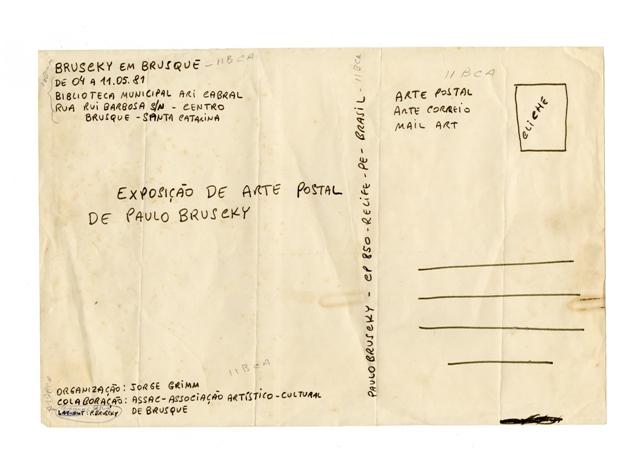 BRUSCKY EM BRUSQUE - 11 BCA
DE 04 A 11.05.81
BIBLIOTECA MUNICIPAL ARI CABRAL
RUA RUI BARBOSA S/N - CENTRO
BRUSQUE - SANTA CATARINA
EXPOSIÇÃO DE ARTE POSTAL
DE PAULO BRUSCKY
11 BCA
ORGANIZAÇÃO: JORGE GRIMM
COLABORAÇÃO: ASSAC-ASSOCIAÇÃO ARTÍSTICO-CULTURAL
DE BRUSQUE
LAY-OUT: P. BRUSCKY
PAULO BRUSCKY - CP 850 - RECIFE - PE - BRASIL - 11 BCA
11 BCA
ARTE POSTAL
ARTE CORREIO
MAIL ART
CLICHE